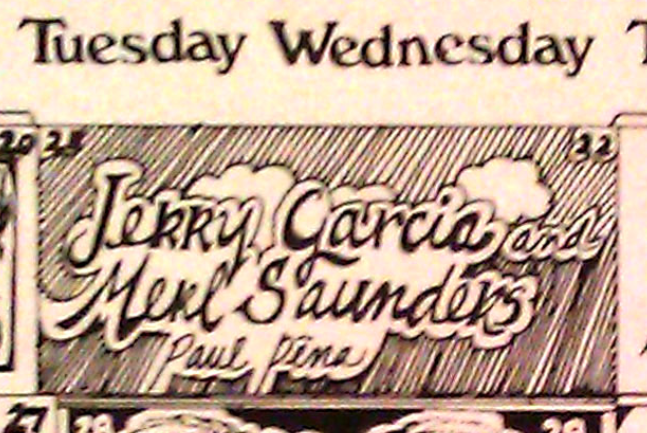 Tuesday Wednesday T
20 21 22
Jerry Garcia and
Merl Saunders
Paul Pena
27 28 29